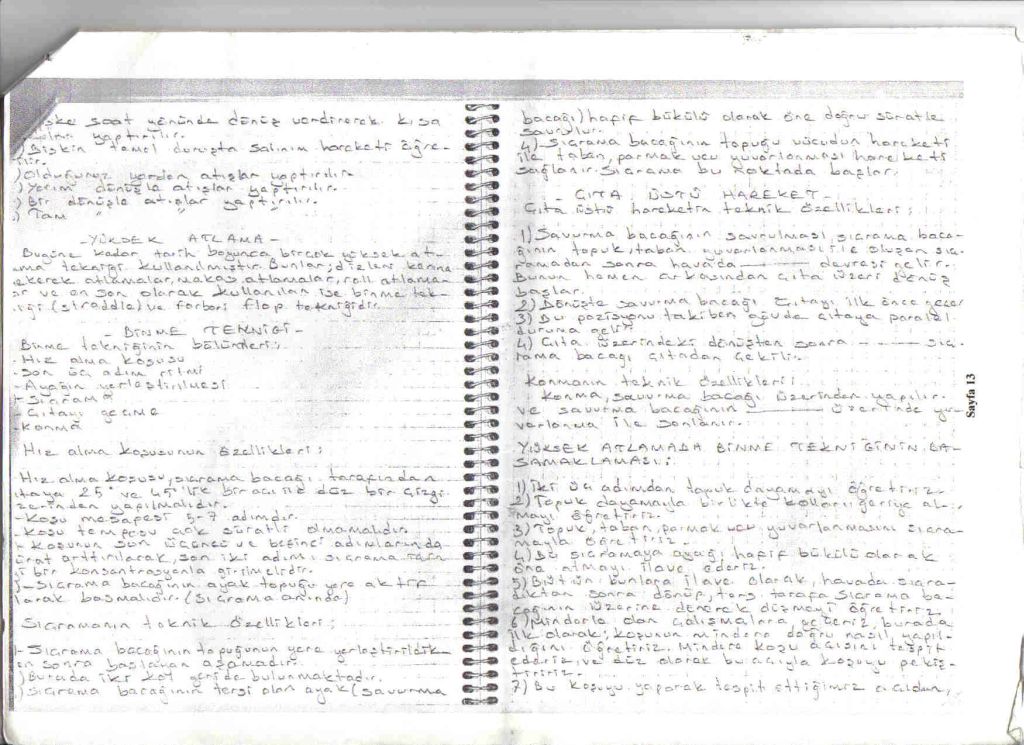 saat yönünde dönüş verdirerek kısa
yaptırılır.
) Bişkin temel duruşta salınım hareketi öğre-
tilir.
) Olduğunuz yerden atışlar yaptırılır.
) Yarım dönüşle atışlar yaptırılır.
) Bir dönüşle atışlar yaptırılır.
) Tam " " "
- YÜKSEK ATLAMA -
Bugüne kadar tarih boyunca birçok yüksek at-
lama tekniği kullanılmıştır. Bunlar; dizleri karına
çekerek atlamalar, makas atlamalar, roll atlama-
lar ve en son olarak kullanılan ise binme tek-
niği (straddle) ve forbori flop tekniğidir.
- BİNME TEKNİĞİ -
Binme tekniğinin bölümleri;
- Hız alma koşusu
- Son üç adım ritmi
- Ayağın yerleştirilmesi
- Sıçrama
- Çıtayı geçme
- Konma
Hız alma koşusunun özellikleri;
- Hız alma koşusu, sıçrama bacağı tarafından
çıtaya 25° ve 45°'lik bir açı ile düz bir çizgi
üzerinden yapılmalıdır.
- Koşu mesafesi 5-7 adımdır.
- Koşu temposu çok süratli olmamalıdır.
- Koşunun son üçüncü ve beşinci adımlarında
sürat arttırılacak, son iki adım sıçrama için
bir konsantrasyonla girilmelidir.
- Sıçrama bacağının ayak topuğu yere aktif
olarak basmalıdır. (sıçrama anında)
Sıçramanın teknik özellikleri;
- Sıçrama bacağının topuğunun yere yerleştirildik-
ten sonra başlayan aşamadır.
) Burada iki kol geride bulunmaktadır.
) Sıçrama bacağının tersi olan ayak (savurma
bacağı) hafif bükülü olarak öne doğru süratle
savrulur.
4) Sıçrama bacağının topuğu vücudun hareketi
ile taban, parmak ucu yuvarlanması hareketi
sağlanır. Sıçrama bu noktada başlar.
- ÇITA ÜSTÜ HAREKET -
Çıta üstü hareketin teknik özellikleri;
1) Savurma bacağının savrulması sıçrama baca-
ğının topuk, taban yuvarlanması ile oluşan sıç-
ramadan sonra havada ——— devresi gelir.
Bunun hemen arkasından çıta üzeri dönüş
başlar.
2) Dönüşte savurma bacağı çıtayı ilk önce geçer
3) Bu pozisyonu takiben gövde çıtaya paralel
duruma gelir.
4) Çıta üzerindeki dönüşten sonra ——— sıç-
rama bacağı çıtadan çekilir.
Konmanın teknik özellikleri;
Konma, savurma bacağı üzerinden yapılır.
ve savurma bacağının ——— üzerinde yu-
varlanma ile sonlanır.
YÜKSEK ATLAMADA BİNME TEKNİĞİNİN BA-
SAMAKLAMASI;
1) İki üç adımdan topuk dayamayı öğretiriz.
2) Topuk dayamayla birlikte kolları geriye al-
mayı öğretiriz.
3) Topuk, taban, parmak ucu yuvarlanmasını sıçra-
mayla öğretiriz.
4) Bu sıçramaya ayağı hafif bükülü olarak
öne atmayı ilave ederiz.
5) Bütün bunlara ilave olarak, havada sıçra-
dıktan sonra dönüp, ters tarafa sıçrama ba-
cağının üzerine dönerek düşmeyi öğretiriz
6) Minderle olan çalışmalara geçeriz, burada
ilk olarak; koşunun mindere doğru nasıl yapıl-
dığını öğretiriz. Mindere koşu açısını tespit
ederiz ve düz olarak bu açıyla koşuyu pekiş-
tiririz.
7) Bu koşuyu yaparak tespit ettiğimiz açıdan,
Sayfa 13